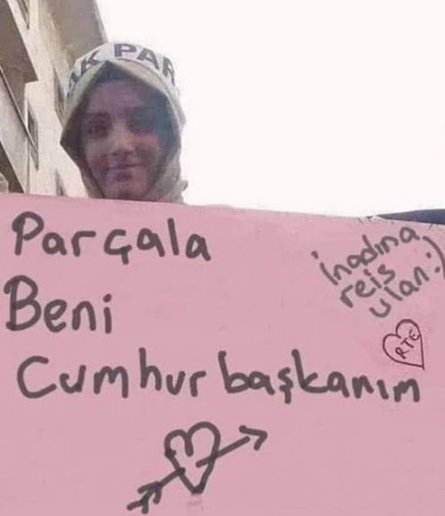 AK PAR
Parçala
Beni
Cumhurbaşkanım
İnadına
reis
ulan:)
RTE